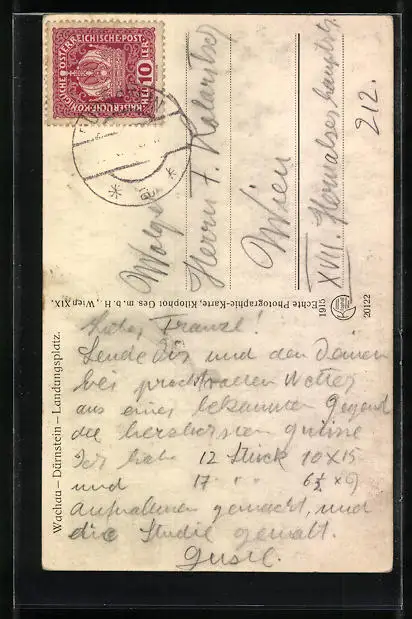 KAISERLICHE KÖNIGLICHE ÖSTERREICHISCHE POST
10 HELLER 10
Wohlg.
Herrn F. Kolaritsch
Wien
XVII. Hernalser hauptstr.
212.
Echte Photographie-Karte, Kilophot Ges. m. b. H., Wien XIX.
1915
20122
Wachau – Dürnstein – Landungsplatz.
Lieber Franzl!
Sende Dir und den Deinen
bei prachtvollem Wetter
aus einer bekannten Gegend
die herzlichsten Grüsse
Ich habe 12 Stück 10 x 15
und 17 " " 6½ x 9
Aufnahmen gemacht, und
die Studie gemalt.
Gustl.